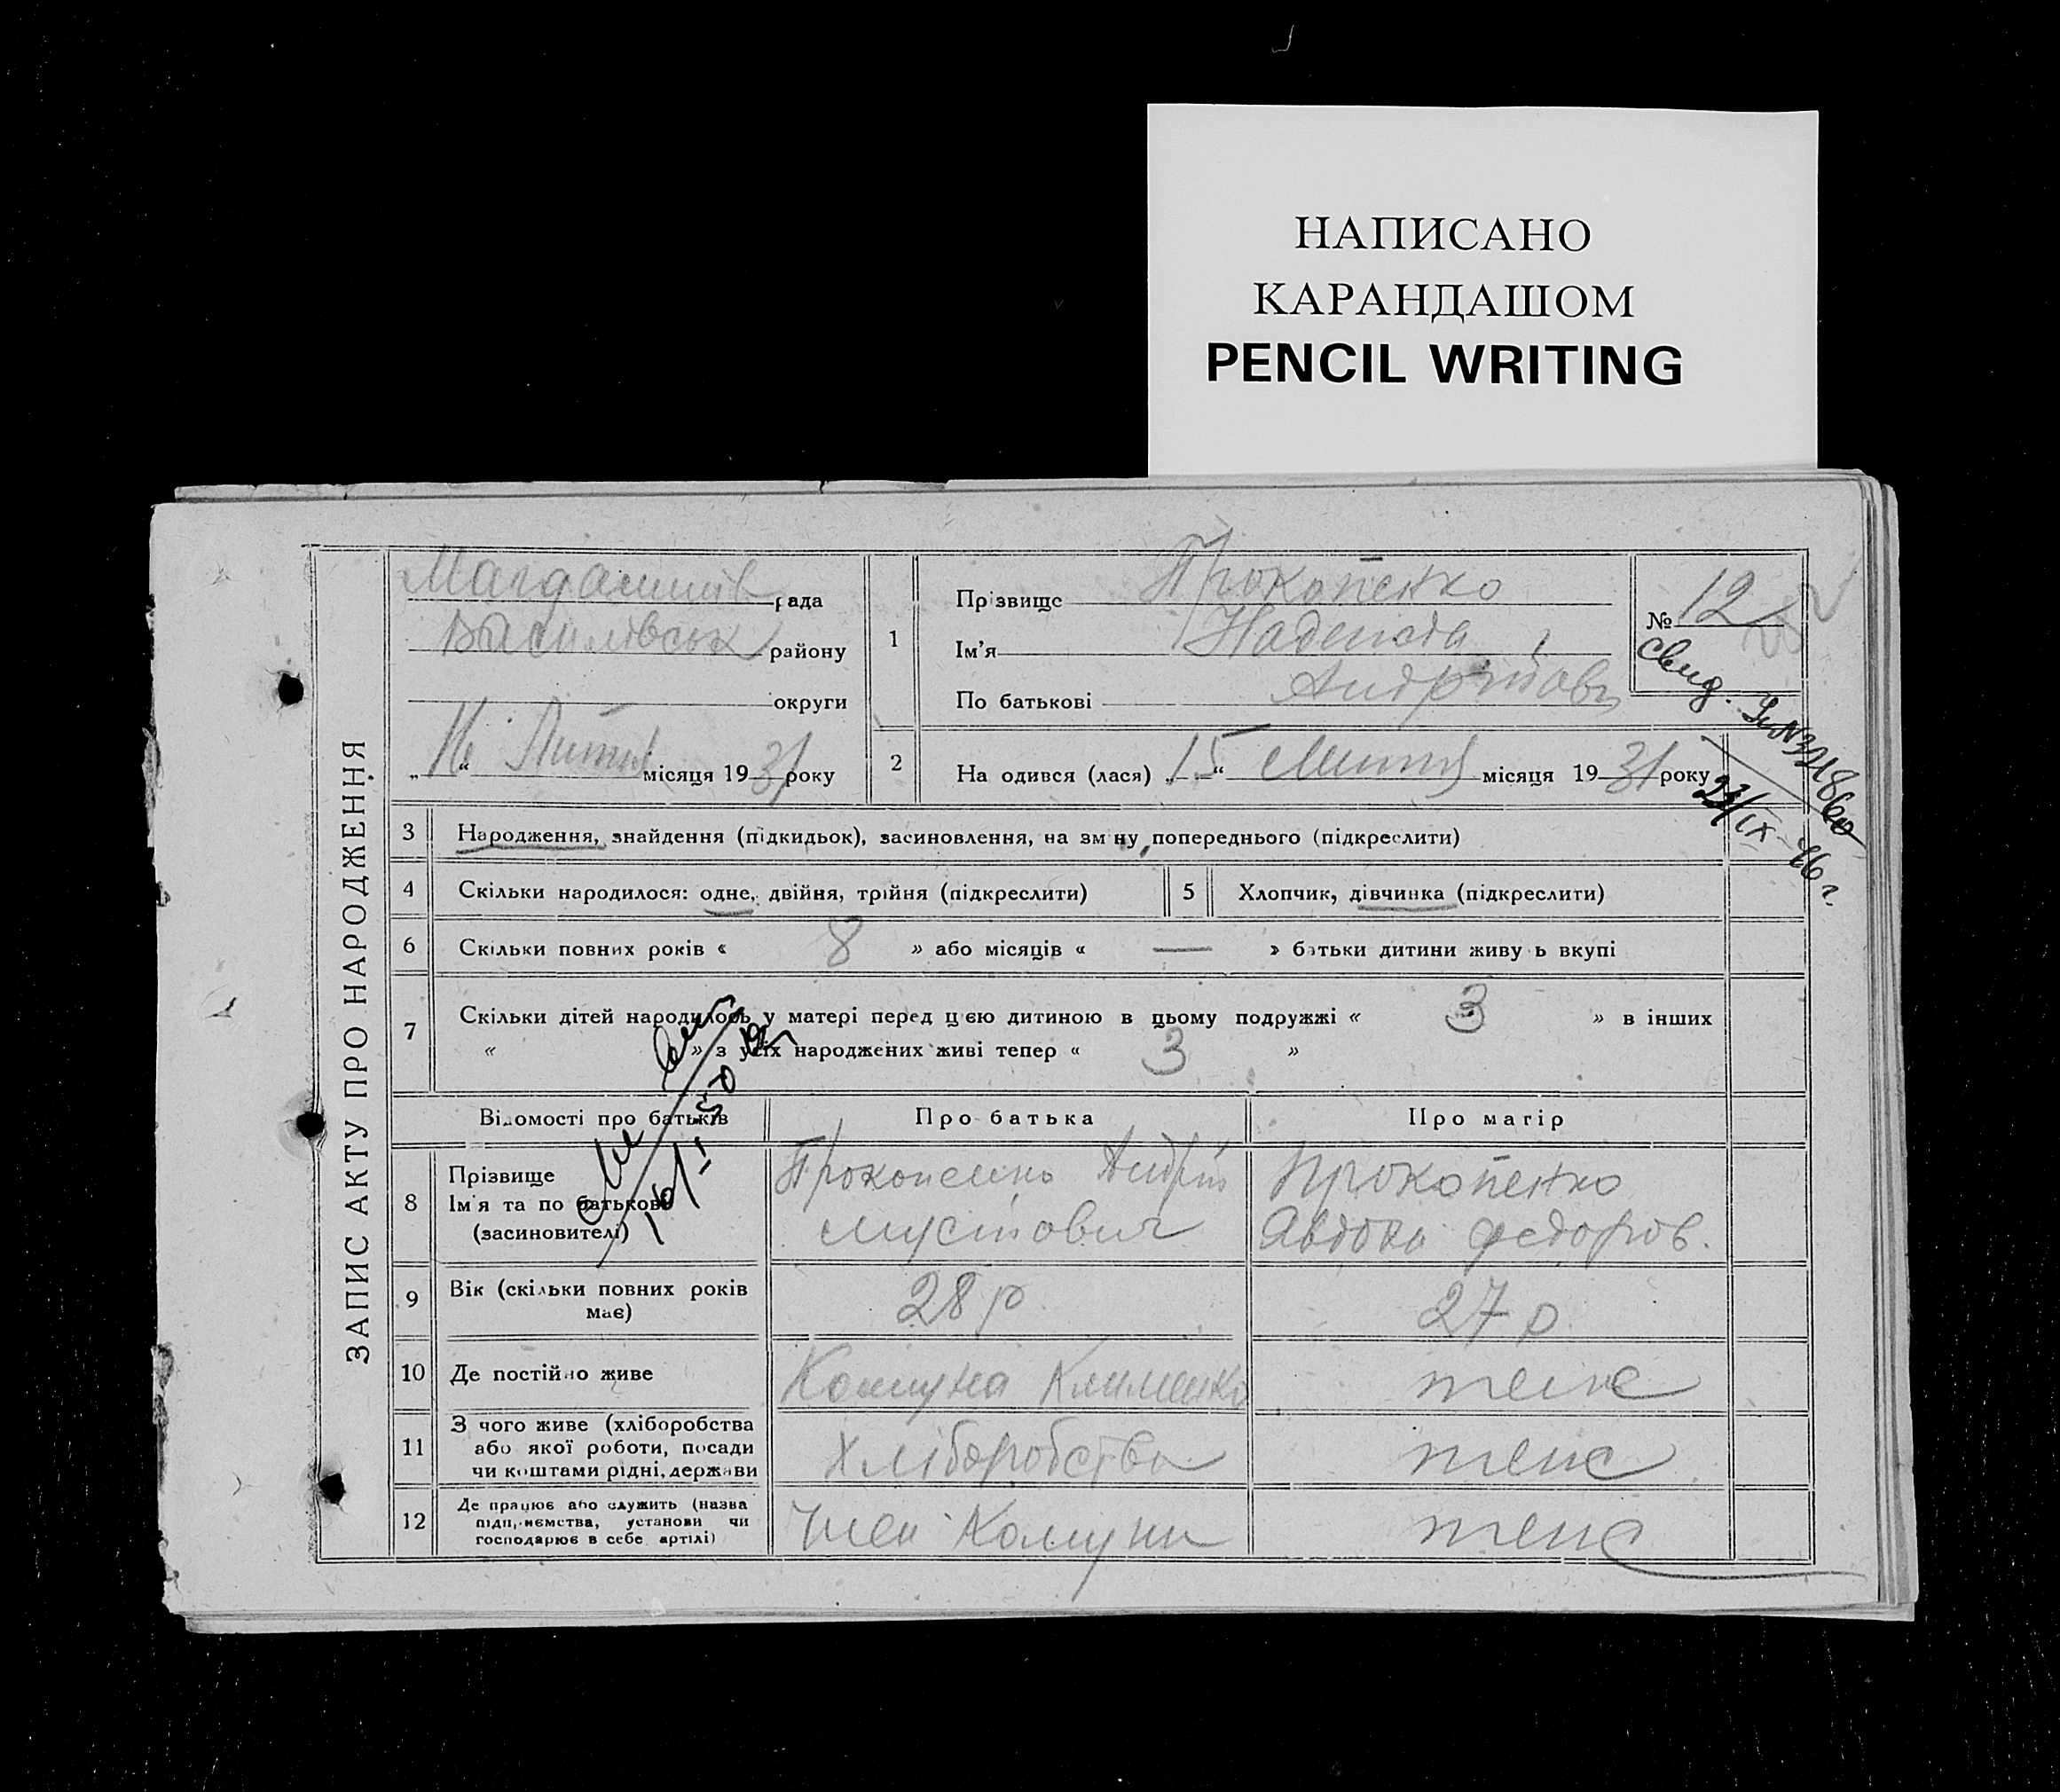 НАПИСАНО
КАРАНДАШОМ
PENCIL WRITING
ЗАПИС АКТУ ПРО НАРОДЖЕННЯ
рада
Василівськ району
округи
„16“ Лютня місяця 1931 року
1
Прізвище Прокопенко
Ім'я Надежда
По батькові
№ 12
2 На одився (лася) „15“ Лютня місяця 1931 року
3 Народження, знайдення (підкидьок), засиновлення, на зм ну попереднього (підкреслити)
4 Скільки народилося: одне, двійня, трійня (підкреслити)
5 Хлопчик, дівчинка (підкреслити)
6 Скільки повних років « 8 » або місяців « — » батьки дитини живу ь вкупі
7 Скільки дітей народилось у матері перед цією дитиною в цьому подружжі « 3 » в інших
« » з усіх народжених живі тепер « 3 »
Відомості про батьків Про батька Про матір
8 Прізвище
Ім'я та по батькові
(засновителі)
Прокопенко Андрій
Прокопенко
Федоров.
9 Вік (скільки повних років
має)
28 р
27 р
10 Де постійно живе
Комуна Клименко
теж
11 З чого живе (хліборобства
або якої роботи, посади
чи коштами рідні, держави
Хліборобства
теж
12 Де працює або служить (назва
підприємства, установи чи
господарює в себе артілі)
Член Комуни
теж
свид.
23/IX-46 г.